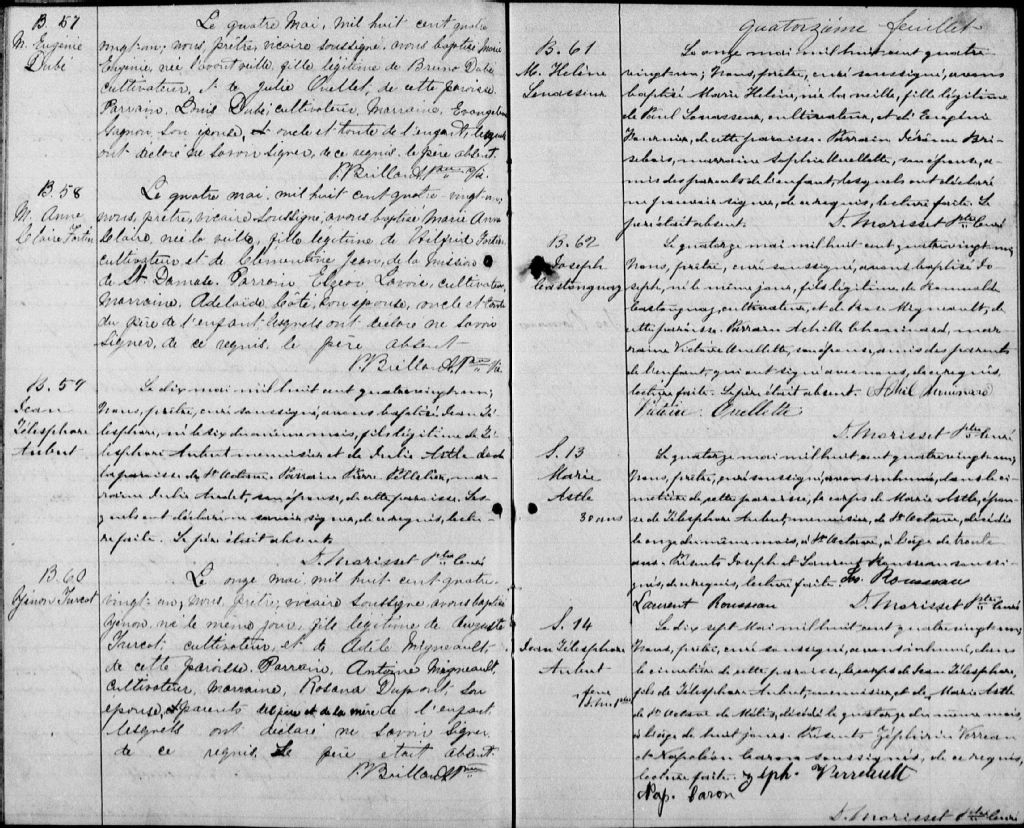 B. 57
M. Eugénie
Dubé
Le quatre mai, mil huit cent quatre
vingt-un; nous, prêtre, vicaire soussigné, avons baptisé Marie
Eugénie, née l'avant veille, fille légitime de Bruno Dubé
cultivateur, et de Julie Ouellet, de cette paroisse.
Parrain, Louis Dubé, cultivateur, Marraine, Evangeline
Gagnon, son épouse, oncle et tante de l'enfant, lesquels
ont déclaré ne savoir signer, de ce requis. le père absent.
P. Brillant Ptre Vic.
B. 58
M. Anne
Claire Fortin
Le quatre mai, mil huit cent quatre-vingt-un,
nous, prêtre, vicaire soussigné, avons baptisé Marie Anne
Claire, née la veille, fille légitime de Wilfrid Fortin,
cultivateur et de Clementine Jean, de la mission
de St. Damase. Parrain, Elzéar Lavoie, cultivateur,
Marraine, Adelaide Coté, son épouse, oncle et tante
du père de l'enfant, lesquels ont déclaré ne savoir
signer, de ce requis. le père absent
P. Brillant Ptre Vic.
B. 59
Jean
Télesphore
Aubut
Le dix mai mil huit cent quatre vingt un;
Nous, prêtre, curé soussigné, avons baptisé Jean Té-
lesphore, né le six du même mois, fils légitime de Té-
lesphore Aubut menuisier et de Julie Astle de
la paroisse de St Octave. Parrain Pierre Pelletier, mar-
raine Julie Audet, son épouse, de cette paroisse. Les-
quels ont déclaré ne savoir signer, de ce requis, lectu-
re faite. Le père était absent.
D. Morisset Ptre Curé
B. 60
Zénon Turcot
Le onze mai, mil huit cent quatre
vingt-un, nous, prêtre, vicaire soussigné, avons baptisé
Zénon, né le même jour, fils légitime de Auguste
Turcot, cultivateur, et de Adèle Migneault,
de cette paroisse. Parrain, Antoine Migneault,
cultivateur, Marraine, Rosana Dupont, son
épouse, parents du père et de la mère de l'enfant
lesquels ont déclaré ne savoir signer
de ce requis. Le père était absent.
P. Brillant Ptre
Quatorzième feuillet
B. 61
M. Helène
Levasseur
Le onze mai mil huit cent quatre-
vingt un; Nous, prêtre, curé soussigné, avons
baptisé Marie Helène, née la veille, fille légitime
de Paul Levasseur, cultivateur, et d'Eugénie
Fournier, de cette paroisse. Parrain Jérôme Bri-
sebois, marraine Sophie Ouellette, son épouse, a-
mis des parents de l'enfant, lesquels ont déclaré
ne pouvoir signer, de ce requis, lecture faite. Le
père était absent. D. Morisset Ptre Curé
B. 62
Joseph
Castonguay
Le quatorze mai mil huit cent quatre vingt un;
Nous, prêtre, curé soussigné, avons baptisé Jo-
seph, né le même jour, fils légitime de
Castonguay, cultivateur, et de Migneault, de
cette paroisse. Parrain Achille Chouinard, mar-
raine Victoire Ouellette, son épouse, amis des parents
de l'enfant, qui ont signé avec nous, de ce requis,
lecture faite. Le père était absent.
Ouellette
D. Morisset Ptre Curé
S. 13
Marie
Astle
30 ans
Le quatorze mai mil huit cent quatre vingt un,
Nous, prêtre, curé soussigné, avons inhumé, dans le ci-
metière de cette paroisse, le corps de Marie Astle, épou-
se de Télesphore Aubut, menuisier, de St Octave, décédée
le onze du même mois, à St Octave, à l'âge de trente
ans. Présents Joseph et Laurent Rousseau soussi-
gnés, de ce requis, lecture faite. Jos. Rousseau
Laurent Rousseau D. Morisset Ptre Curé
S. 14
Jean Télesphore
Aubut
Le dix sept Mai mil huit cent quatre vingt un,
Nous, prêtre, curé soussigné, avons inhumé, dans
le cimetière de cette paroisse, le corps de Jean Télesphore,
fils de Télesphore Aubut, menuisier, et de Marie Astle
de St Octave de Métis, décédé le quatorze du même mois,
à l'âge de huit jours. Présents Zéphirin Verreau
et Napoléon Caron soussignés, de ce requis,
lecture faite. Zeph. Verreault
Nap. Caron
D. Morisset Ptre Curé